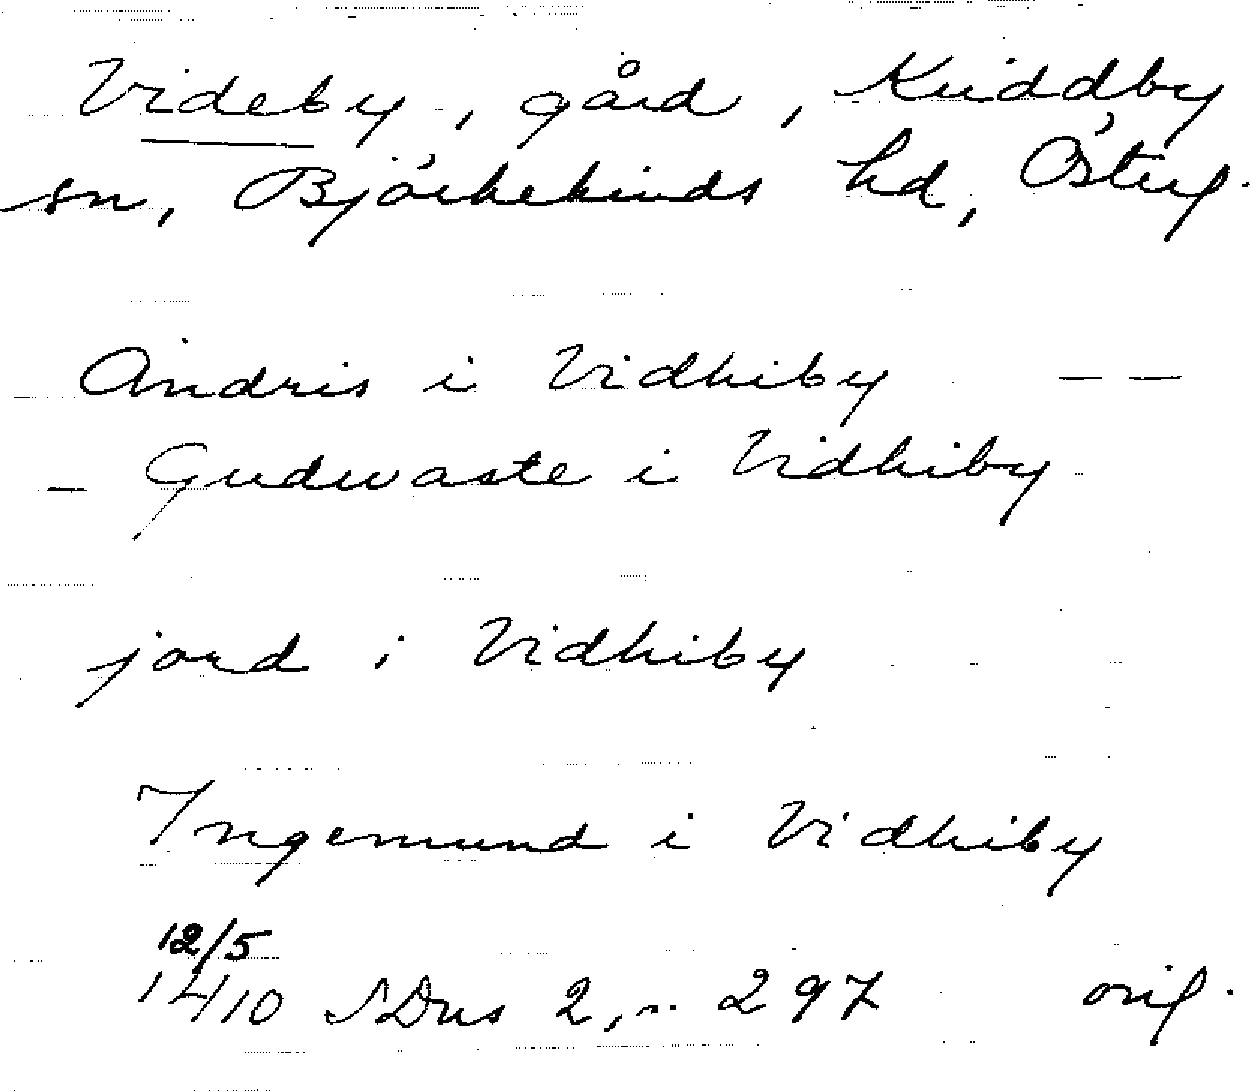 Videby, gård, Kuddby
sn, Björkekinds hd, Österg.
Andris i Vidhiby — —
— Gudwaste i Vidhiby
jord i Vidhiby
Ingemund i Vidhiby
12/5
1410 SDns 2, n. 297 orig.